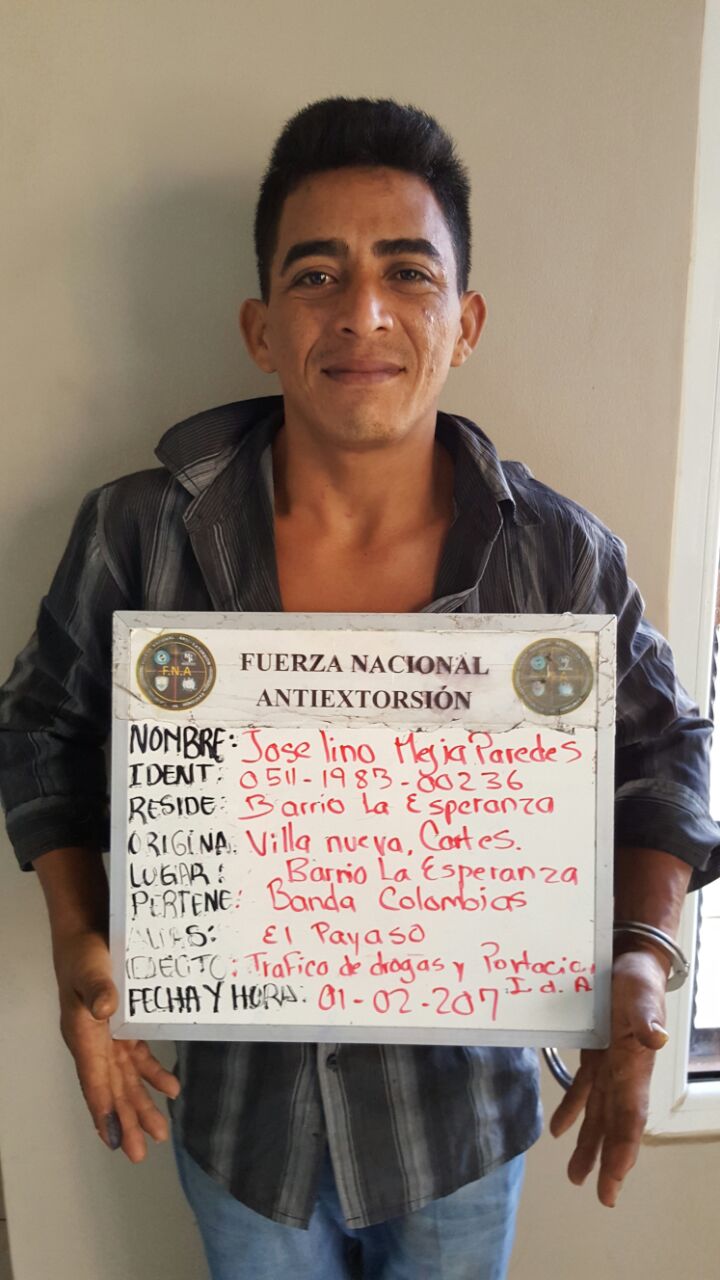 F.N.A
FUERZA NACIONAL
ANTIEXTORSIÓN
NOMBRE: Jose lino Mejia Paredes
IDENT: 0511-1983-00236
RESIDE: Barrio La Esperanza
ORIGINA: Villa nueva, Cortes.
LUGAR: Barrio La Esperanza
PERTENE: Banda Colombias
ALIAS: El Payaso
DELICTO: Trafico de drogas y Portacio
I d. A
FECHA Y HORA: 01-02-207